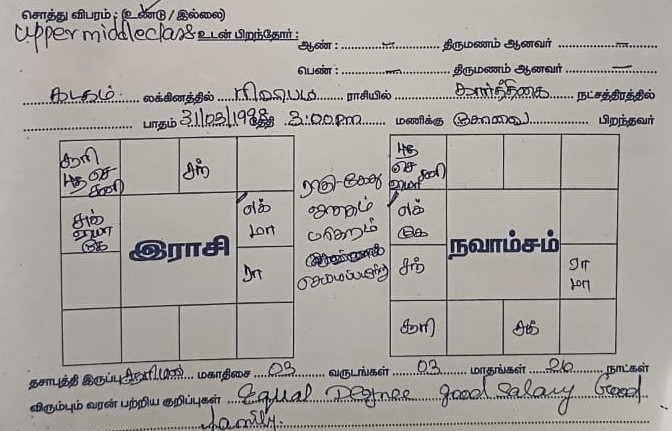 சொத்து விபரம் : (உண்டு / இல்லை)
upper middle class உடன் பிறந்தோர் : ஆண் : – திருமணம் ஆனவர் –
பெண் : – திருமணம் ஆனவர் –
கடகம் லக்கினத்தில் ரிஷபம ராசியில் கார்த்திகை நட்சத்திரத்தில்
பாதம் 31/03/1998 தேதி 3:00pm மணிக்கு பிறந்தவர்
சூரி
புத செ
சனி
சந்
சுக்
குே
லக்
மா
ரா
இராசி
ராகு-கேது
ஜாதகம்
புத
செ
சனி
லக்
கே
சந்
ரா
மா
சூரி
சுக்
நவாம்சம்
தசாபுத்தி இருப்பு சூரியன் மகாதிசை 03 வருடங்கள் 03 மாதங்கள் 26 நாட்கள்
விரும்பும் வரன் பற்றிய குறிப்புகள் Equal Degree good salary Good
family.